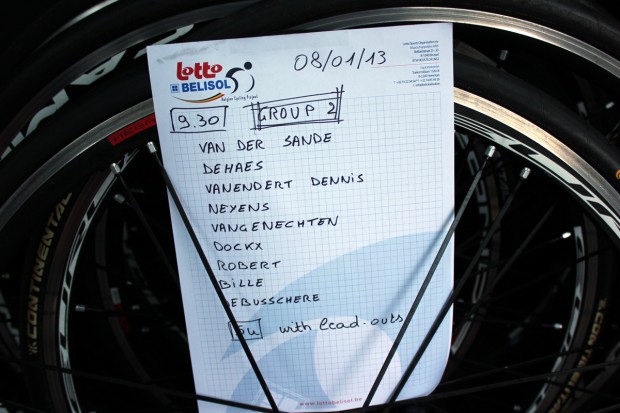 08/01/13
Lotto
BELISOL
Belgian Cycling Project
9.30 GROUP 2
VAN DER SANDE
DEHAES
VANENDERT DENNIS
NEYENS
VANGENECHTEN
DOCKX
ROBERT
BILLE
EBUSSCHERE
with lead-outs
www.lottobelisol.be
CONTINENTAL